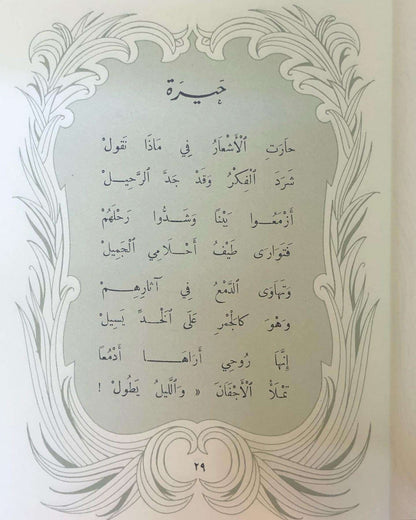 حَيرَة
حَارَتِ ٱلْأَشْعَارُ فِي مَاذَا تَقُولْ
شَرَدَ ٱلْفِكْرُ وَقَدْ جَدَّ ٱلرَّحِيلْ
أَزْمَعُوا بَيْنًا وَشَدُّوا رَحْلَهُمْ
فَتَوَارَى طَيْفُ أَحْلَامِي ٱلْجَمِيلْ
وَتَهَاوَى ٱلدَّمْعُ فِي آثَارِهِمْ
وَهْوَ كَالْجَمْرِ عَلَى ٱلْخَدِّ يَسِيلْ
إِنَّهَا رُوحِي أَرَاهَا أَدْمُعًا
تَمْلَأُ ٱلْأَجْفَانَ « وَٱللَّيلُ يَطُولْ !
٢٩